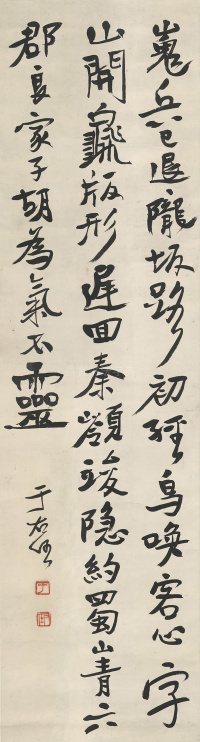 嵬兵已退隴坂路初經鳥喚客心字
山開龜版形遲回秦嶺峻隐約蜀山青六
郡良家子胡為氣不靈
于右任